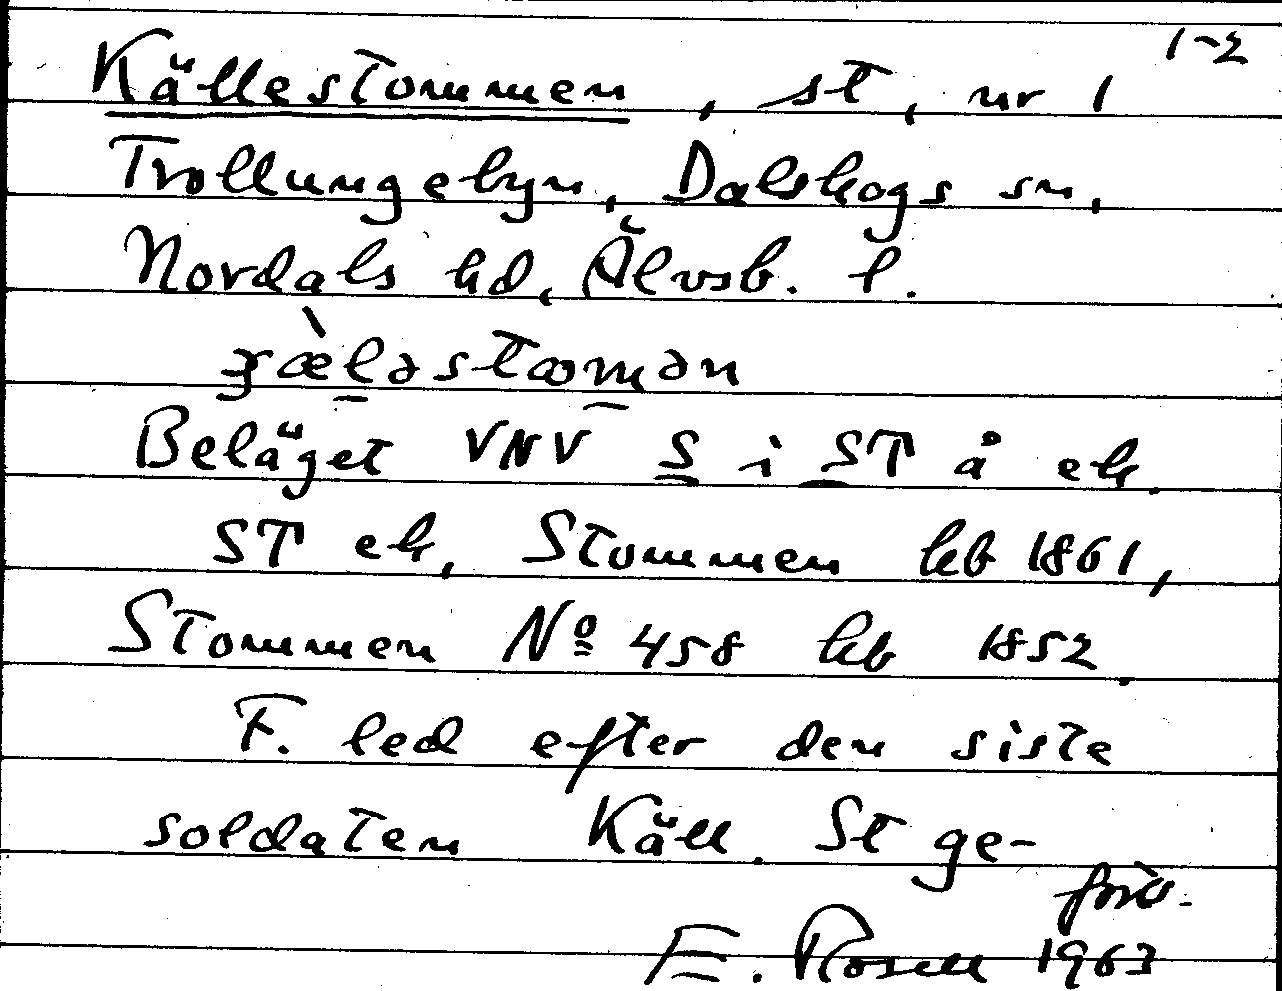 1-2
Källestommen, st, nr 1
Trollungebyn, Dalskogs sn,
Nordals hd, Älvsb. l.
Beläget VNV S i ST å ek.
ST ek, Stommen kb 1861,
Stommen No 458 kb 1852.
F. led efter den siste
soldaten Käll. St ge-
E. Rosell 1963